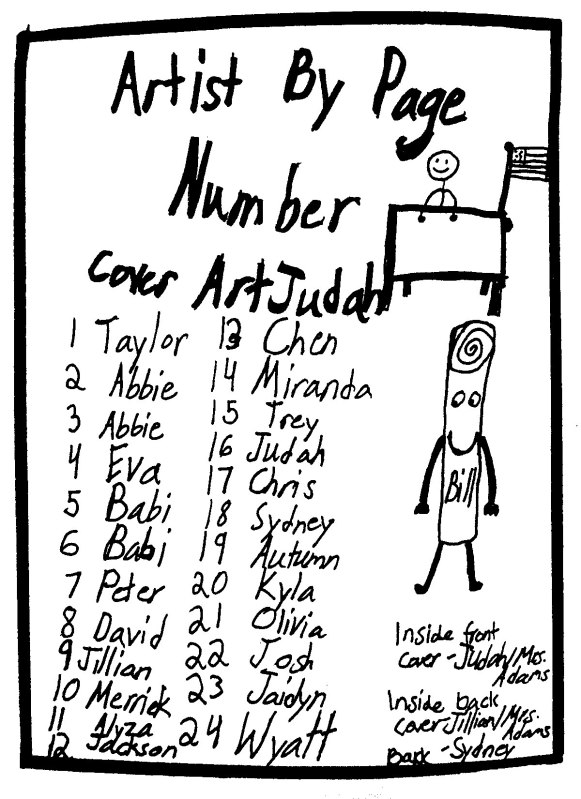 Artist By Page
Number
Cover Art Judah
1 Taylor
2 Abbie
3 Abbie
4 Eva
5 Babi
6 Babi
7 Peter
8 David
9 Jillian
10 Merrick
11 Alyza
12 Jackson
13 Chen
14 Miranda
15 Trey
16 Judah
17 Chris
18 Sydney
19 Autumn
20 Kyla
21 Olivia
22 Josh
23 Jaidyn
24 Wyatt
Bill
Inside front
cover - Judah/Mrs.
Adams
Inside back
cover Jillian/Mrs.
Adams
Back - Sydney